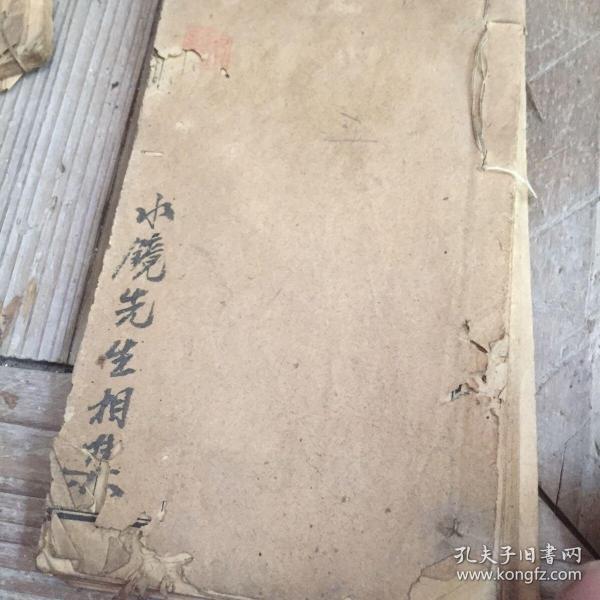 水镜先生相集
孔夫子旧书网
www.kongfz.com